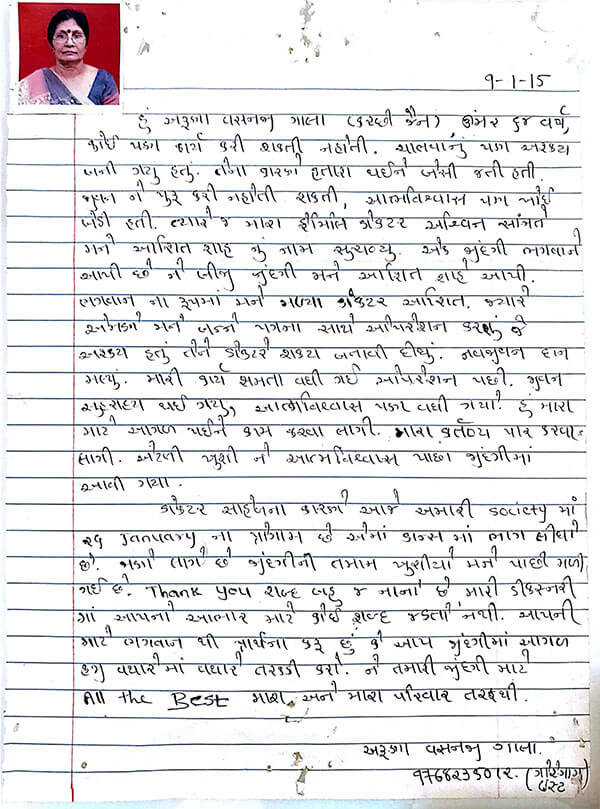 ૧-1-15
હું અરૂણા વસનજી ગાલા (કચ્છી જૈન), ઉંમર ૬૪ વર્ષ,
કોઈ પણ કાર્ય કરી શકતી નહોતી. ચાલવાનું પણ અશક્ય
બની ગયુ હતું. તેના કારણે હતાશ થઈને બેસી જતી હતી.
જીવન ને પુરૂ કરી નહોતી શકતી, આત્મવિશ્વાસ પણ ખોઈ
બેઠી હતી. ત્યારે જ મારા ફેમિલિ ડોકટર અશ્વિન સાંગતે
મને આશિત શાહ નું નામ સુચવ્યુ. એક જીંદગી ભગવાને
આપી છે ને બીજી જીંદગી મને આશિત શાહે આપી.
ભગવાન ના રૂપમાં મને મળ્યા ડોકટર આશિત. જ્યારે
એમણે મને બન્ને પગના સાથે ઓપરેશન કરવું જે
અશક્ય હતું તેને ડોકટરે શક્ય બનાવી દીધું. નવજીવન દાન
મળ્યું. મારી કાર્ય ક્ષમતા વધી ગઈ ઓપરેશન પછી. જીવન
થઈ ગયુ, આત્મવિશ્વાસ પણ વધી ગયો. હું મારા
માટે આગળ થઈને કામ કરવા લાગી. મારા કર્તવ્ય પાર કરવા
લાગી. એટલી ખુશી ને આત્મવિશ્વાસ પાછા જીંદગીમાં
આવી ગયા.
ડોકટર સાહેબના કારણે આજે અમારી society માં
૨૬ January ના પ્રોગ્રામ છે એમાં ડાન્સ માં ભાગ લીધો
છે. જાણે લાગે છે જીંદગીની તમામ ખુશીયો મને પાછી મળી
ગઈ છે. Thank you શબ્દ બહુ જ નાનો છે મારી ડીકસનરી
માં આપનો આભાર માટે કોઈ શબ્દ જડતો નથી. આપની
માટે ભગવાન થી પ્રાર્થના કરૂ છું કે આપ જીંદગીમાં આગળ
હજુ વધારેમાં વધારે તરક્કી કરો. ને તમારી જીંદગી માટે
All the Best મારા અને મારા પરિવાર તરફથી.
અરૂણા વસનજી ગાલા.
(ગોરેગાવ